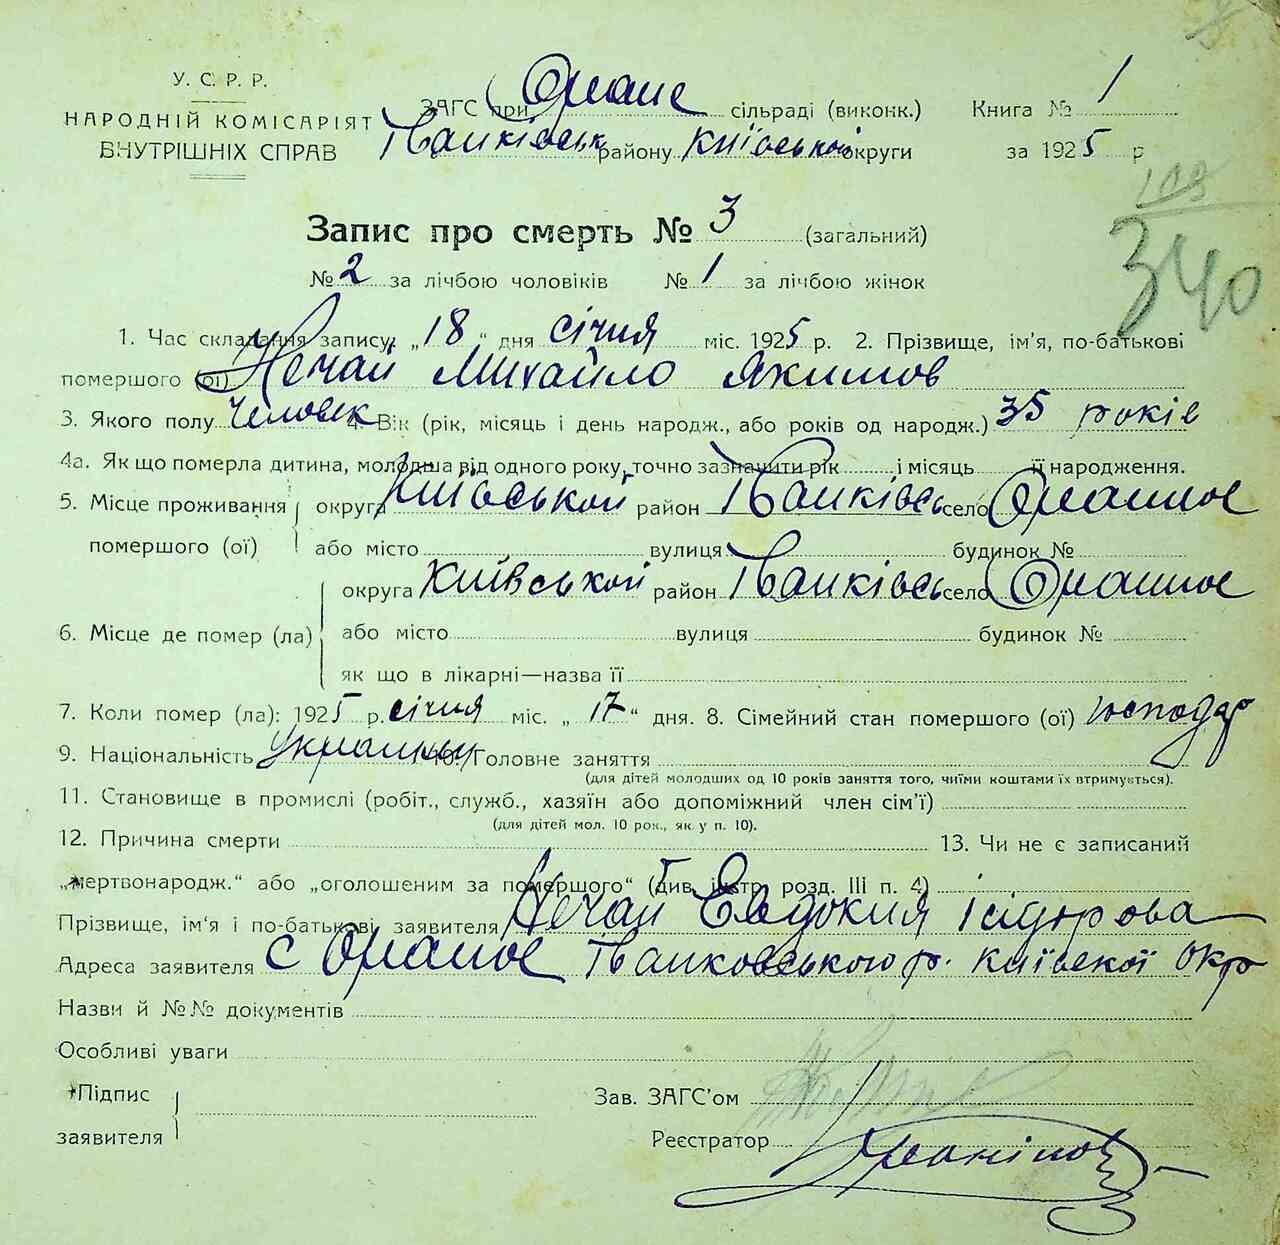 У. С. Р. Р.
НАРОДНІЙ КОМІСАРІЯТ
ВНУТРІШНІХ СПРАВ
ЗАГС при Оране сільраді (виконк.)
Іванківськ району Київської округи
Книга № 1
за 1925 р
340
Запис про смерть № 3 (загальний)
№ 2 за лічбою чоловіків № 1 за лічбою жінок
1. Час складання запису: „18“ дня січня міс. 1925 р. 2. Прізвище, ім'я, по-батькові
помершого (ої) Нечай Михайло Якимов
3. Якого полу человек 4. Вік (рік, місяць і день народж., або років од народж.) 35 років
4а. Як що померла дитина, молодша від одного року, точно зазначити рік і місяць її народження.
5. Місце проживання округа Київської район Іванківсь село Оранное
помершого (ої) або місто вулиця будинок №
округа Київської район Іванківсь село Оранное
6. Місце де помер (ла) або місто вулиця будинок №
як що в лікарні—назва її
7. Коли помер (ла): 1925 р. січня міс. „17“ дня. 8. Сімейний стан помершого (ої) господар
9. Національність 10. Головне заняття
(для дітей молодших од 10 років заняття того, чиїми коштами їх втримується).
11. Становище в промислі (робіт., служб., хазяїн або допоміжний член сім'ї)
(для дітей мол. 10 рок., як у п. 10).
12. Причина смерти 13. Чи не є записаний
„мертвонародж.“ або „оголошеним за помершого“ (див. інстр. розд. III п. 4)
Прізвище, ім'я і по-батькові заявителя Нечай Евдокия Ісідорова
Адреса заявителя с Ораное Іванковського р. Київскої окр
Назви й №№ документів
Особливі уваги
Підпис
заявителя
Зав. ЗАГС'ом
Реєстратор